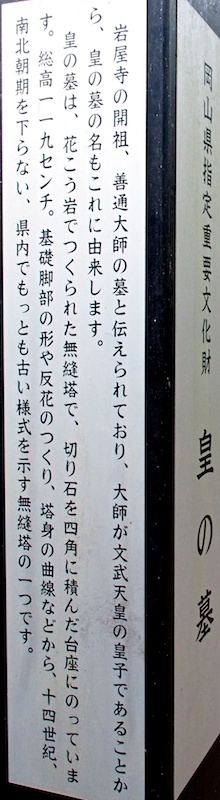 岡山県指定重要文化財 皇の墓
岩屋寺の開祖、善通大師の墓と伝えられており、大師が文武天皇の皇子であることか
ら、皇の墓の名もこれに由来します。
皇の墓は、花こう岩でつくられた無縫塔で、切り石を四角に積んだ台座にのっていま
す。総高一一九センチ。基礎脚部の形や反花のつくり、塔身の曲線などから、十四世紀、
南北朝期を下らない、県内でもっとも古い様式を示す無縫塔の一つです。